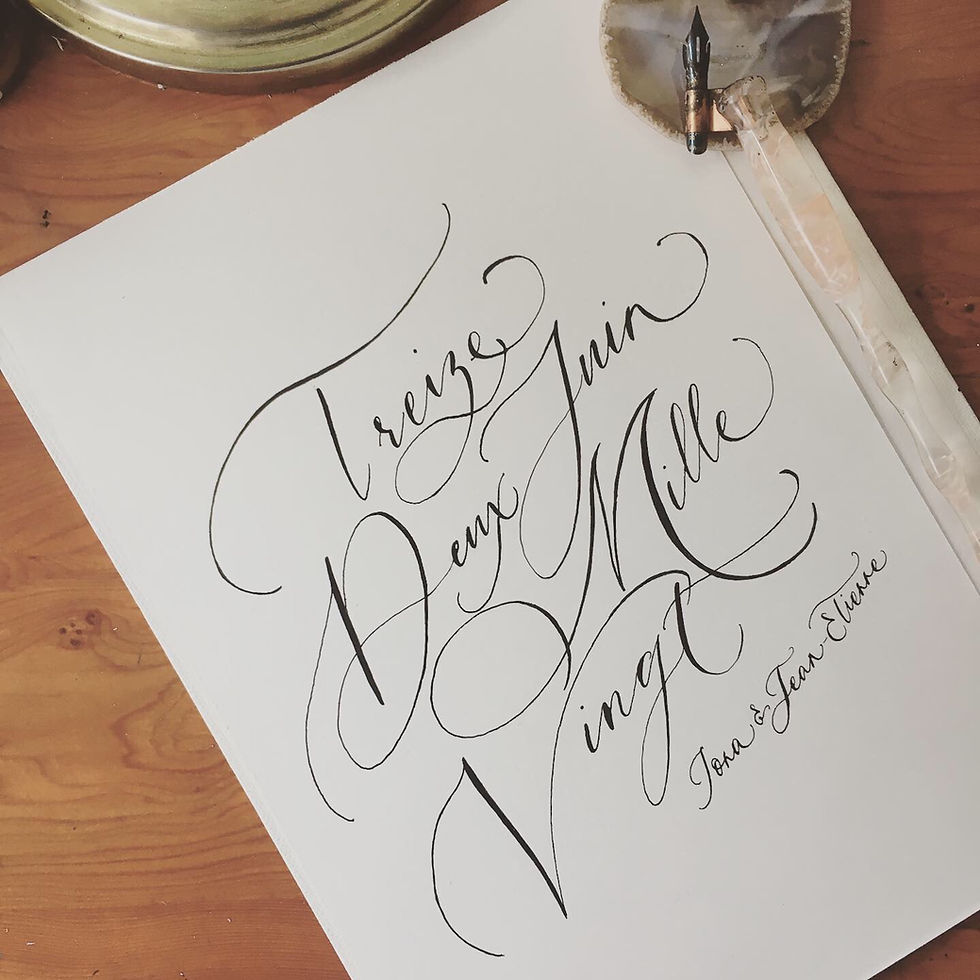 Treize Juin
Deux Mille
Vingt
Iona & Jean-Etienne